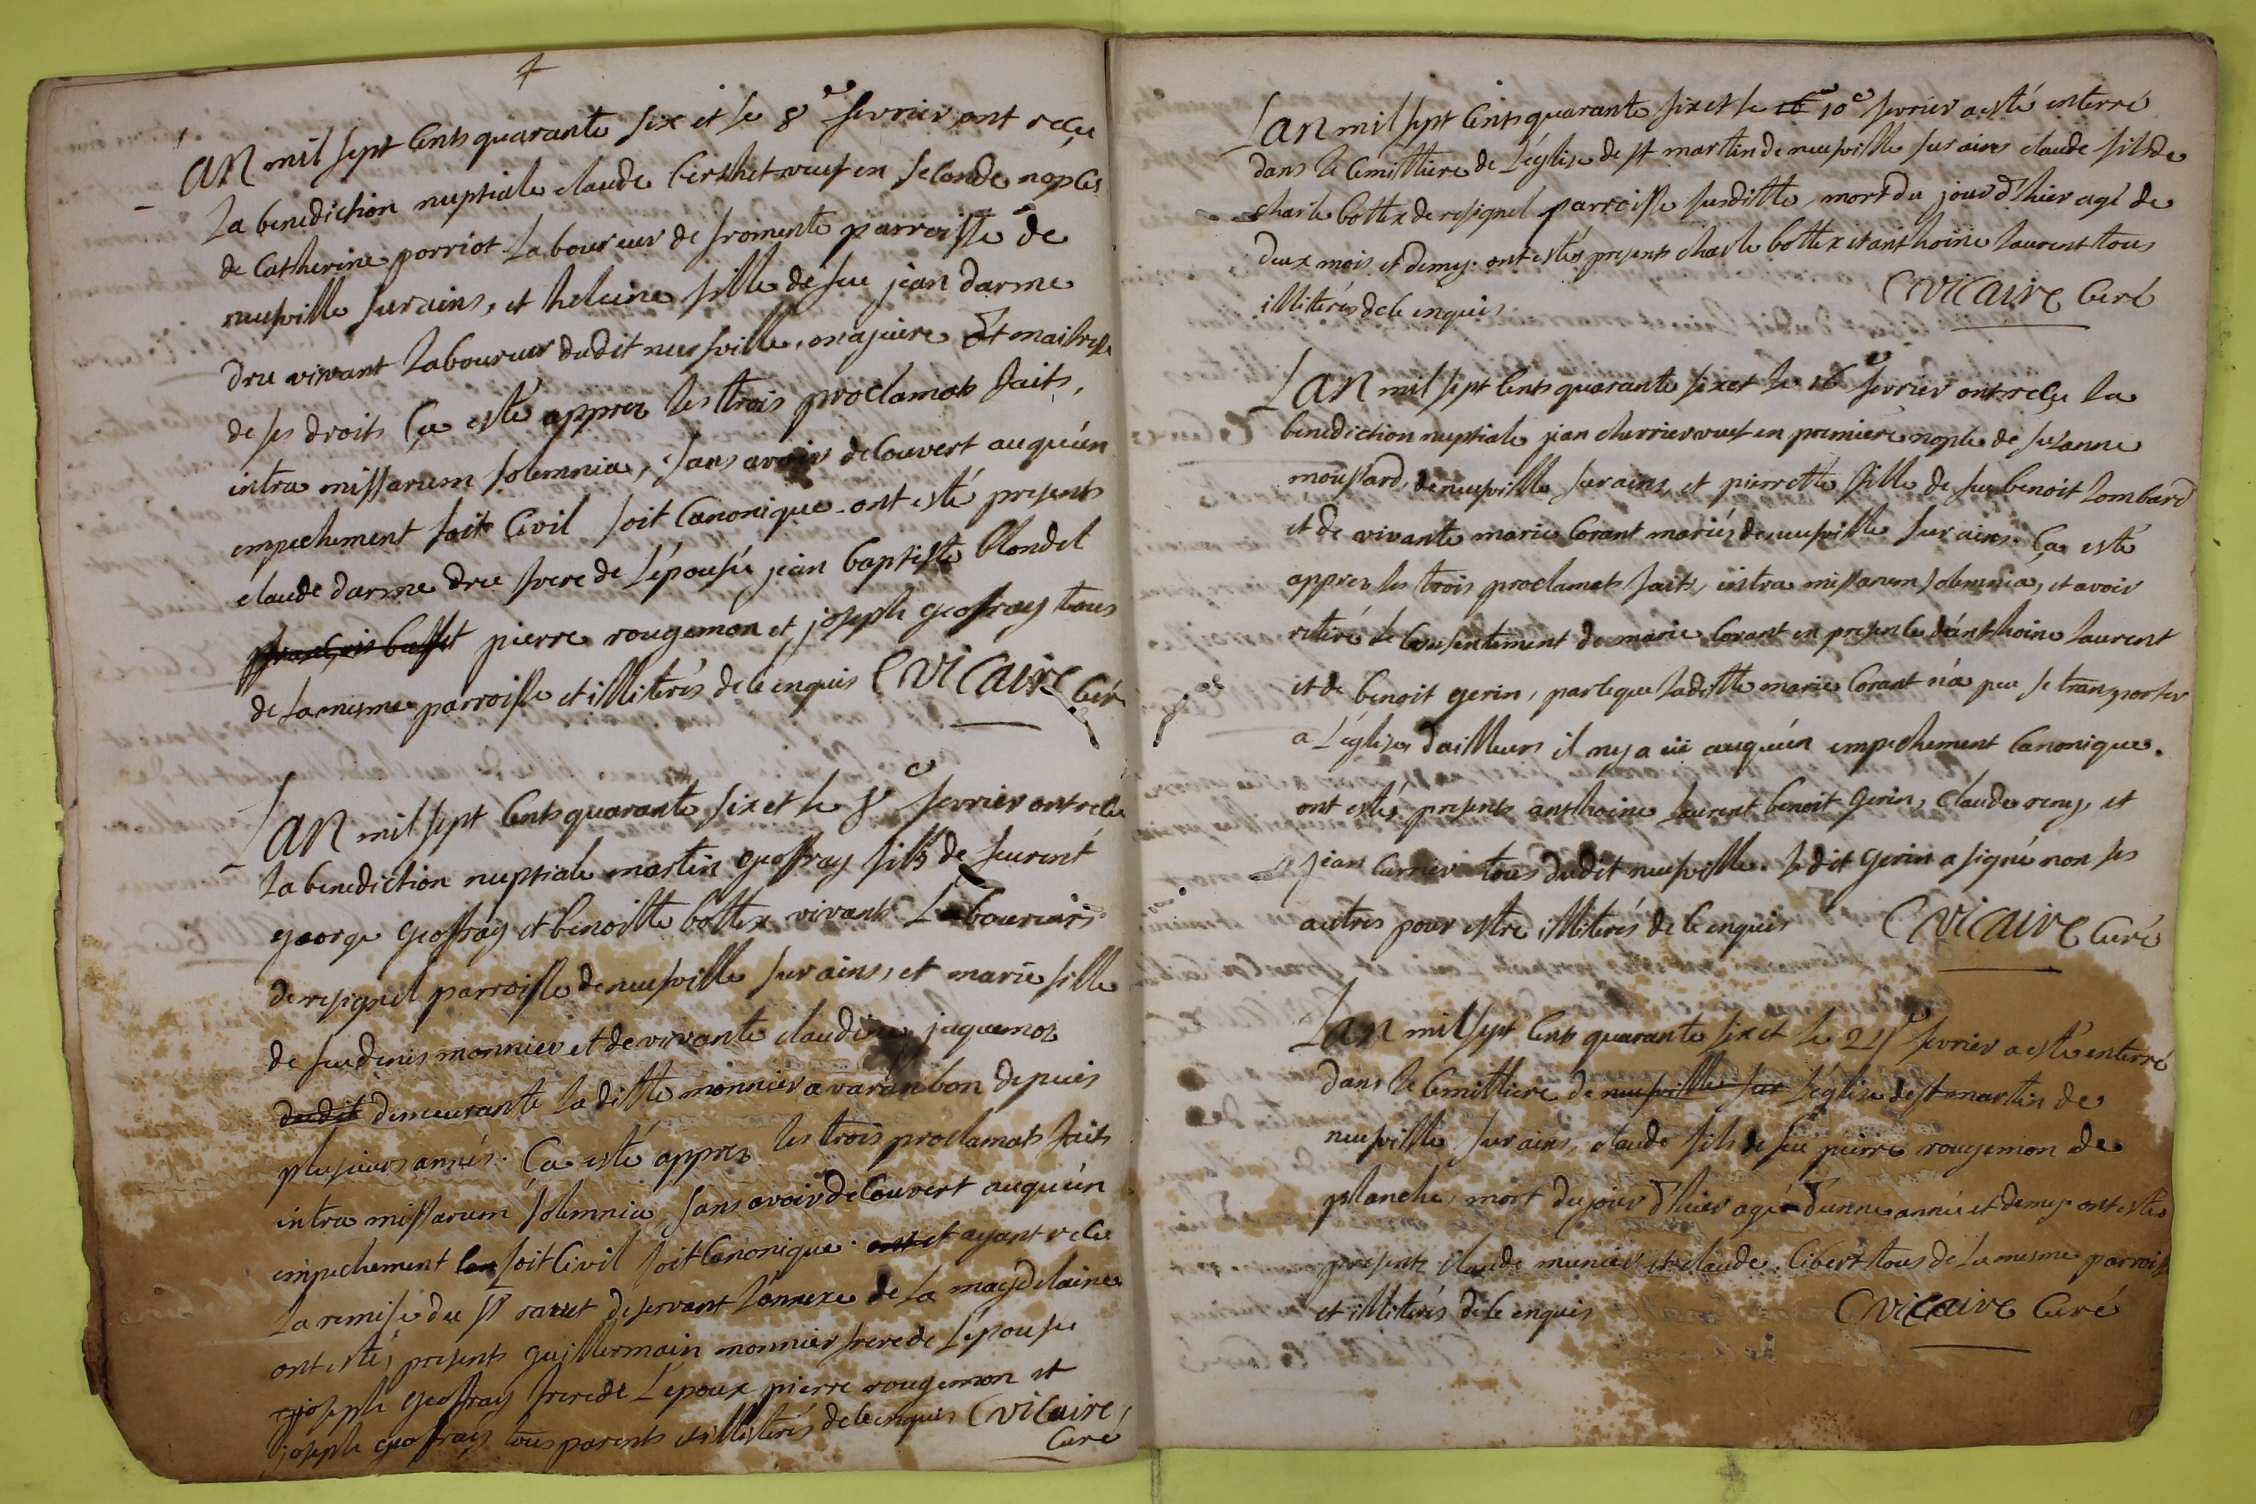 4
L'an mil sept cents quarante six et le 8e fevrier ont reçu
la benediction nuptiale claude veuf en seconde nopces
de Catherine porriot Laboureur de fromente parroisse de
neufville sur ains, et heleine fille de feu jean darme
dru vivant Laboureur dudit neufville, majeure Et maitresse
de ses droits Ça esté apprez les trois proclamats faits,
intra missarum solemnia, sans avoir decouvert auqu'un
empechement soit Civil soit Canonique. ont esté presents
claude darme dru frere de L'epousée jean baptiste blondel
françois buffet pierre rougemon et joseph geoffray tous
de La mesme parroisse et illiterés de ce enquis C vicaire Curé
L'an mil sept cents quarante six et le 8e fevrier ont reçu
La benediction nuptiale martin geoffray fils de
george geoffray et benoitte bottex vivants Laboureurs
de resignel parroisse de neufville sur ains, et marie fille
de feu denis monnier et de vivante claudine jaquemoz
dudit demeurante La ditte monnier a varanbon depuis
plusieurs annés. Ça esté apprez les trois proclamats faits
intra missarum solemnia sans avoir decouvert auqu'un
empechement soit Civil soit Canonique. et ayant reçu
La remise du sr deservant L'annexe de La magdelaine
ont estés presents guillermain monnier frere de L'epousée
joseph geoffray frere de L'epoux pierre rougemon et
joseph geoffray tous parents et illiterés de ce enquis C vicaire
Curé
L'an mil sept cents quarante six et le 10e fevrier a esté enterré
dans le Cemittiere de L'eglise de st martin de neufville sur ains claude fils de
charle bottex de resignel parroisse susditte, mort du jour d'hier agé de
deux mois et demy. ont estés presents charle bottex et anthoine laurent tous
illiterés de ce enquis C vicaire Curé
L'an mil sept cents quarante six et le 16e fevrier ont reçu la
benediction nuptiale jean cherrier veuf en premiere nopce de suzanne
moussard, de neufville sur ains, et pierrette fille de feu benoit Lombard
et de vivante marie Corant mariés de neufville sur ains. Ça esté
apprez les trois proclamats faits, intra missarum solemnia, et avoir
retiré le Consentement de marie Corant en presence d'anthoine laurent
et de benoit gerin, parceque laditte marie Corant n'a peu se transporter
a L'eglise, dailleurs il n'y a eü auqu'un empechement Canonique.
ont estés presents anthoine laurent benoit gerin, Claude remy, et
jean Carrier tous dudit neufville. Ledit gerin a signé non les
autres pour estre illiterés de ce enquis C vicaire Curé
L'an mil sept cents quarante six et le fevrier a esté enterré
dans le Cemittiere de neufville sur L'eglise de st martin de
neufville sur ains, claude fils de feu pierre rougemon de
planche, mort du jour d'hier agé d'unne année et demy. ont estés
presents claude munier et claude tous de La mesme parroisse
et illiterés de ce enquis C vicaire Curé